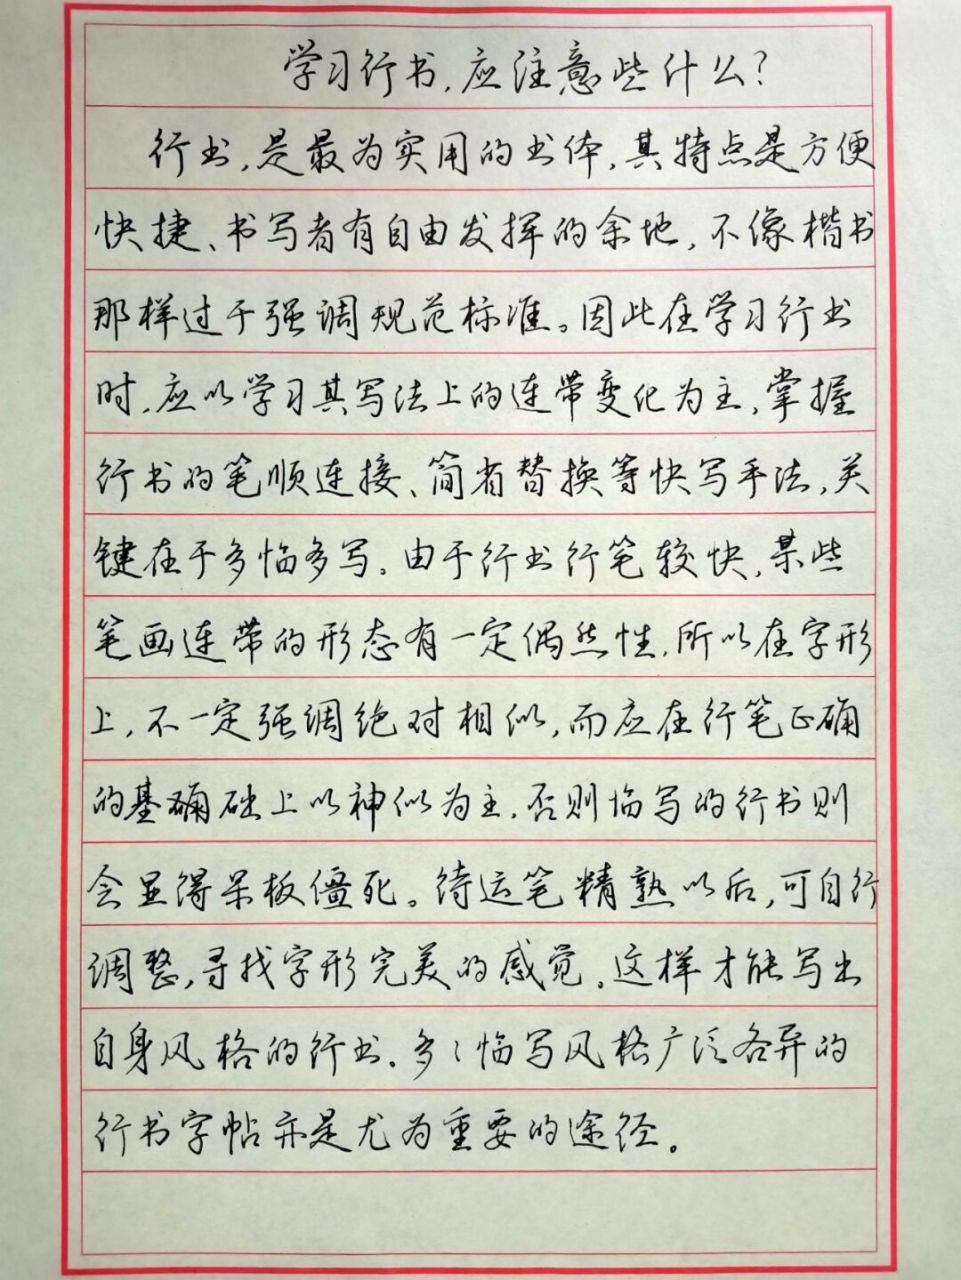 学习行书,应注意些什么?
行书,是最为实用的书体,其特点是方便
快捷、书写者有自由发挥的余地,不像楷书
那样过于强调规范标准。因此在学习行书
时,应以学习其写法上的连带变化为主,掌握
行书的笔顺连接、简省替换等快写手法,关
键在于多临多写。由于行书行笔较快,某些
笔画连带的形态有一定偶然性,所以在字形
上,不一定强调绝对相似,而应在行笔正确
的基确础上以神似为主,否则临写的行书则
会显得呆板僵死。待运笔精熟以后,可自行
调整,寻找字形完美的感觉。这样才能写出
自身风格的行书。多々临写风格广泛各异的
行书字帖亦是尤为重要的途径。